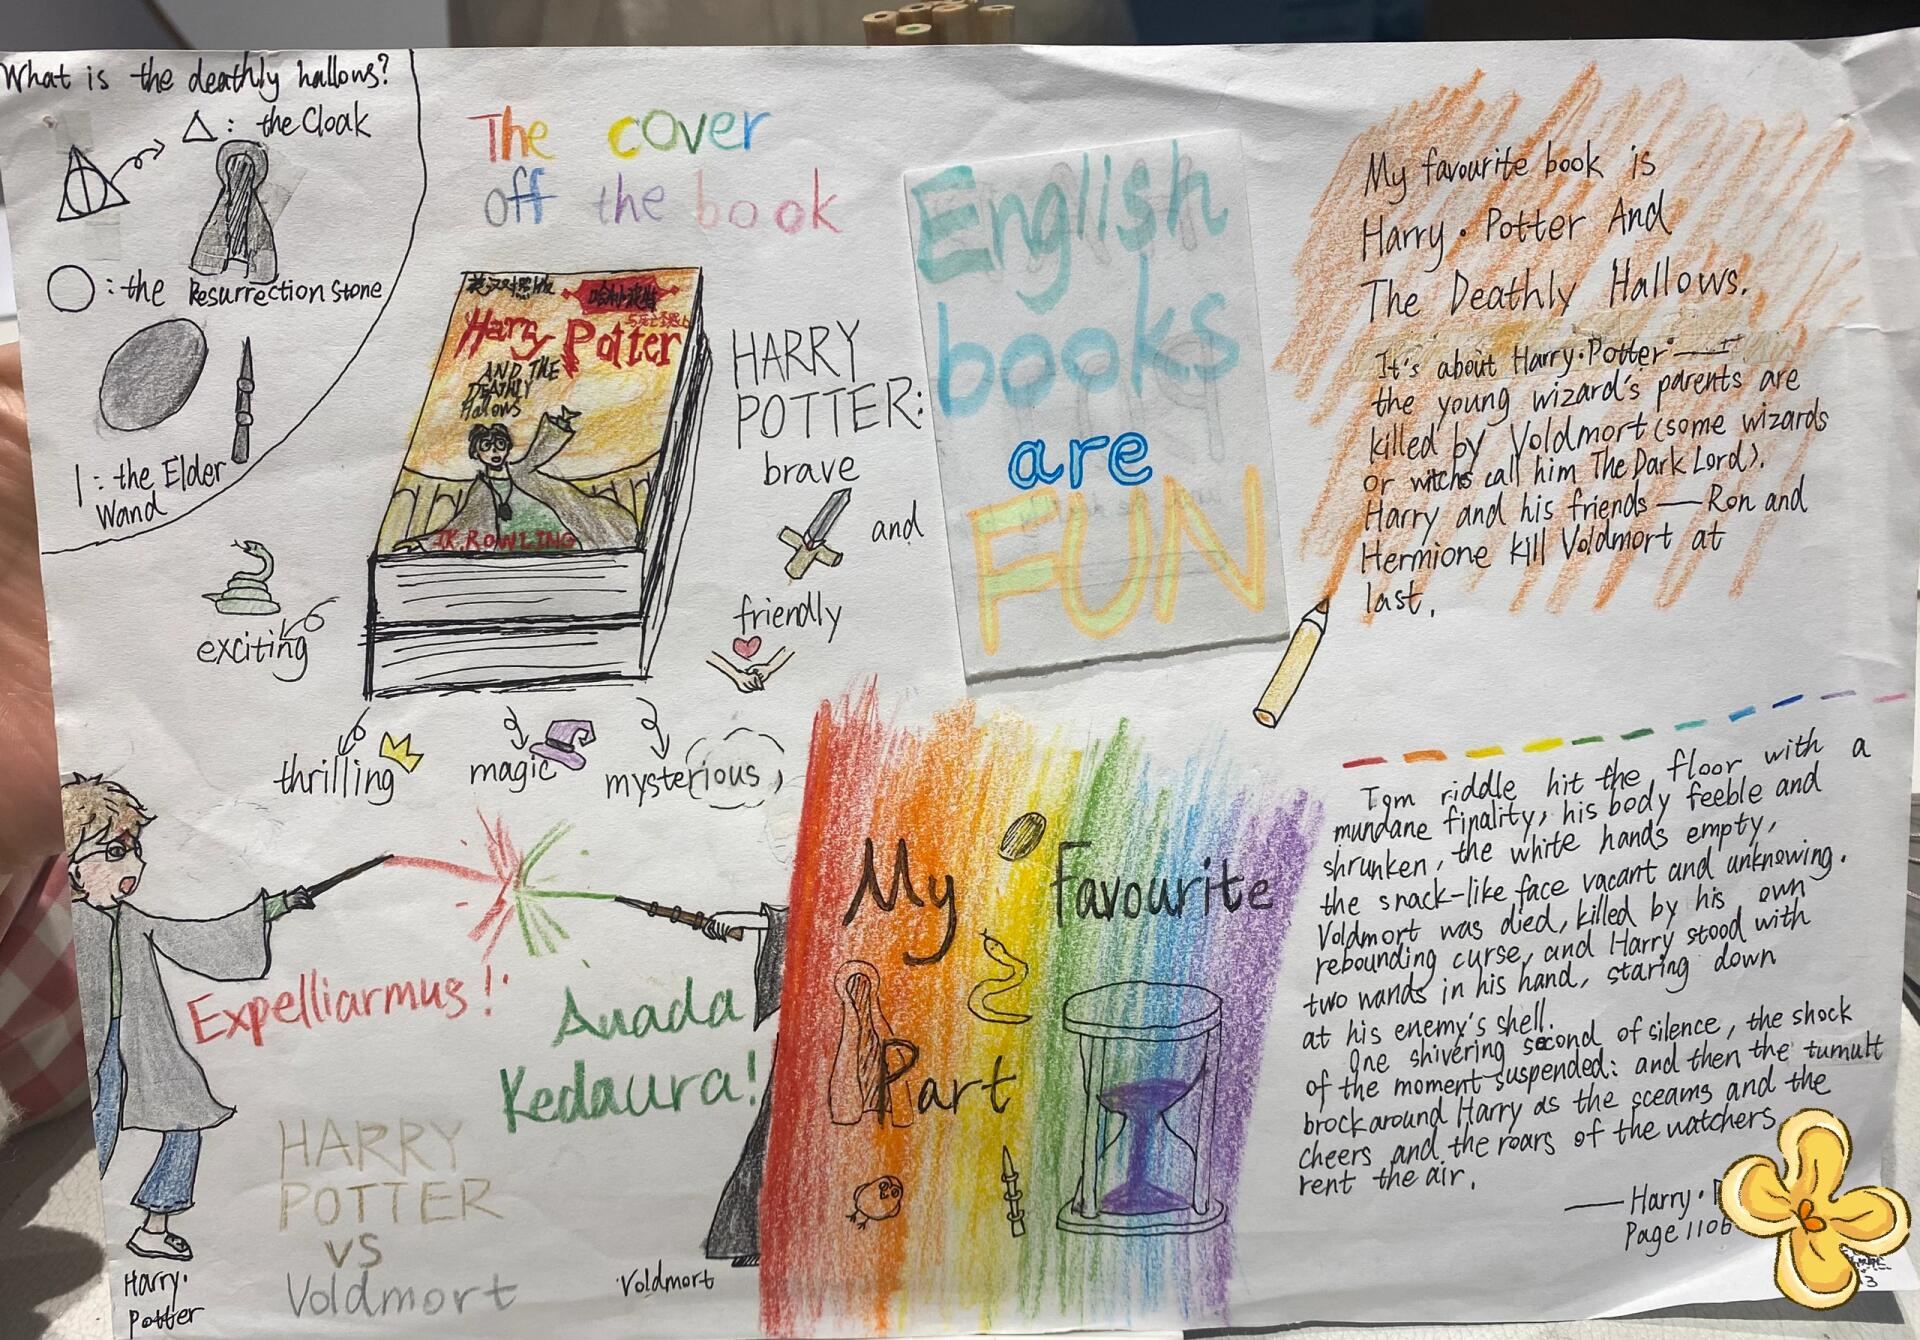 What is the deathly hallows?
△: the Cloak
○: the Resurrection Stone
|: the Elder
Wand
The cover
off the book
英汉对照版
哈利波特
与死亡圣器
Harry Potter
AND THE
DEATHLY
Hallows
J.K.ROWLING
HARRY
POTTER:
brave
and
friendly
exciting
thrilling
magic
mysterious,
English
books
are
FUN
My favourite book is
Harry·Potter And
The Deathly Hallows.
It's about Harry·Potter——
the young wizard's parents are
killed by Voldmort(some wizards
or witchs call him The Dark Lord).
Harry and his friends — Ron and
Hermione kill Voldmort at
last.
Expelliarmus!
Auada
Kedaura!
HARRY
POTTER
VS
Voldmort
Harry·
Potter
Voldmort
My Favourite
Part
Tom riddle hit the floor with a
mundane finality, his body feeble and
shrunken, the white hands empty,
the snack-like face vacant and unknowing.
Voldmort was died, killed by his own
rebounding curse, and Harry stood with
two wands in his hand, staring down
at his enemy's shell.
One shivering second of silence, the shock
of the moment suspended: and then the tumult
brock around Harry as the sceams and the
cheers and the roars of the watchers
rent the air.
——Harry·
Page 1106